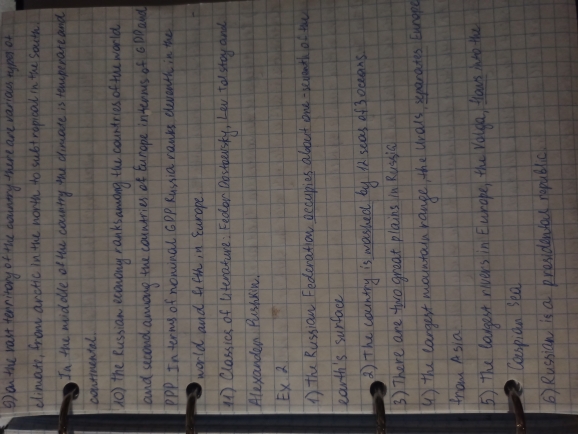 9) On the vast territory of the country there are various types of
climati, from arctic in the north to subtropical in the south.
In the middle of the country the climate is temperate and
continental.
10) The Russian economy ranks among the countries of the world
and second among the countries of Europe in terms of GDP and
PPP. In terms of nominal GDP Russia ranks eleventh in the
world and fifth in Europe.
11) Classics of Literature: Fedor Dostoevsky, Lev Tolstoy and
Alexander Pushkin.
Ex 2
1) The Russian Federation occupies about one-seventh of the
earth's surface
2) The country is washed by 12 seas of 3 oceans.
3) There are two great plains in Russia.
4) The largest mountain range, the Urals, separates Europe
from Asia
5) The longest rivers in Europe, the Volga, flows into the
Caspian Sea
6) Russian is a presidental republic.